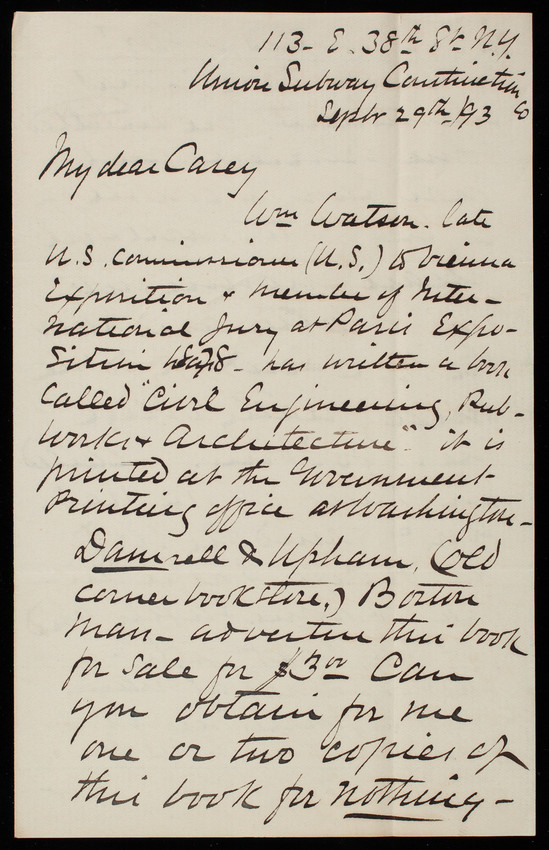 113 - E. 38th St N.Y.
Union Subway Construction
Co
Septr 29th /93
My dear Casey
Wm Watson. late
U.S. commissioner (U.S.) to Vienna
Exposition & member of Inter-
national Jury at Paris Expo-
sition 1878 - has written a book
called "Civil Engineering, Pub-
Works & Architecture" it is
printed at the Government
Printing office at Washington -
Damrell & Upham, (Old
corner bookstore,) Boston
Mass - advertise this book
for sale for $3.00 - Can
you obtain for me
one or two copies of
this book for nothing -